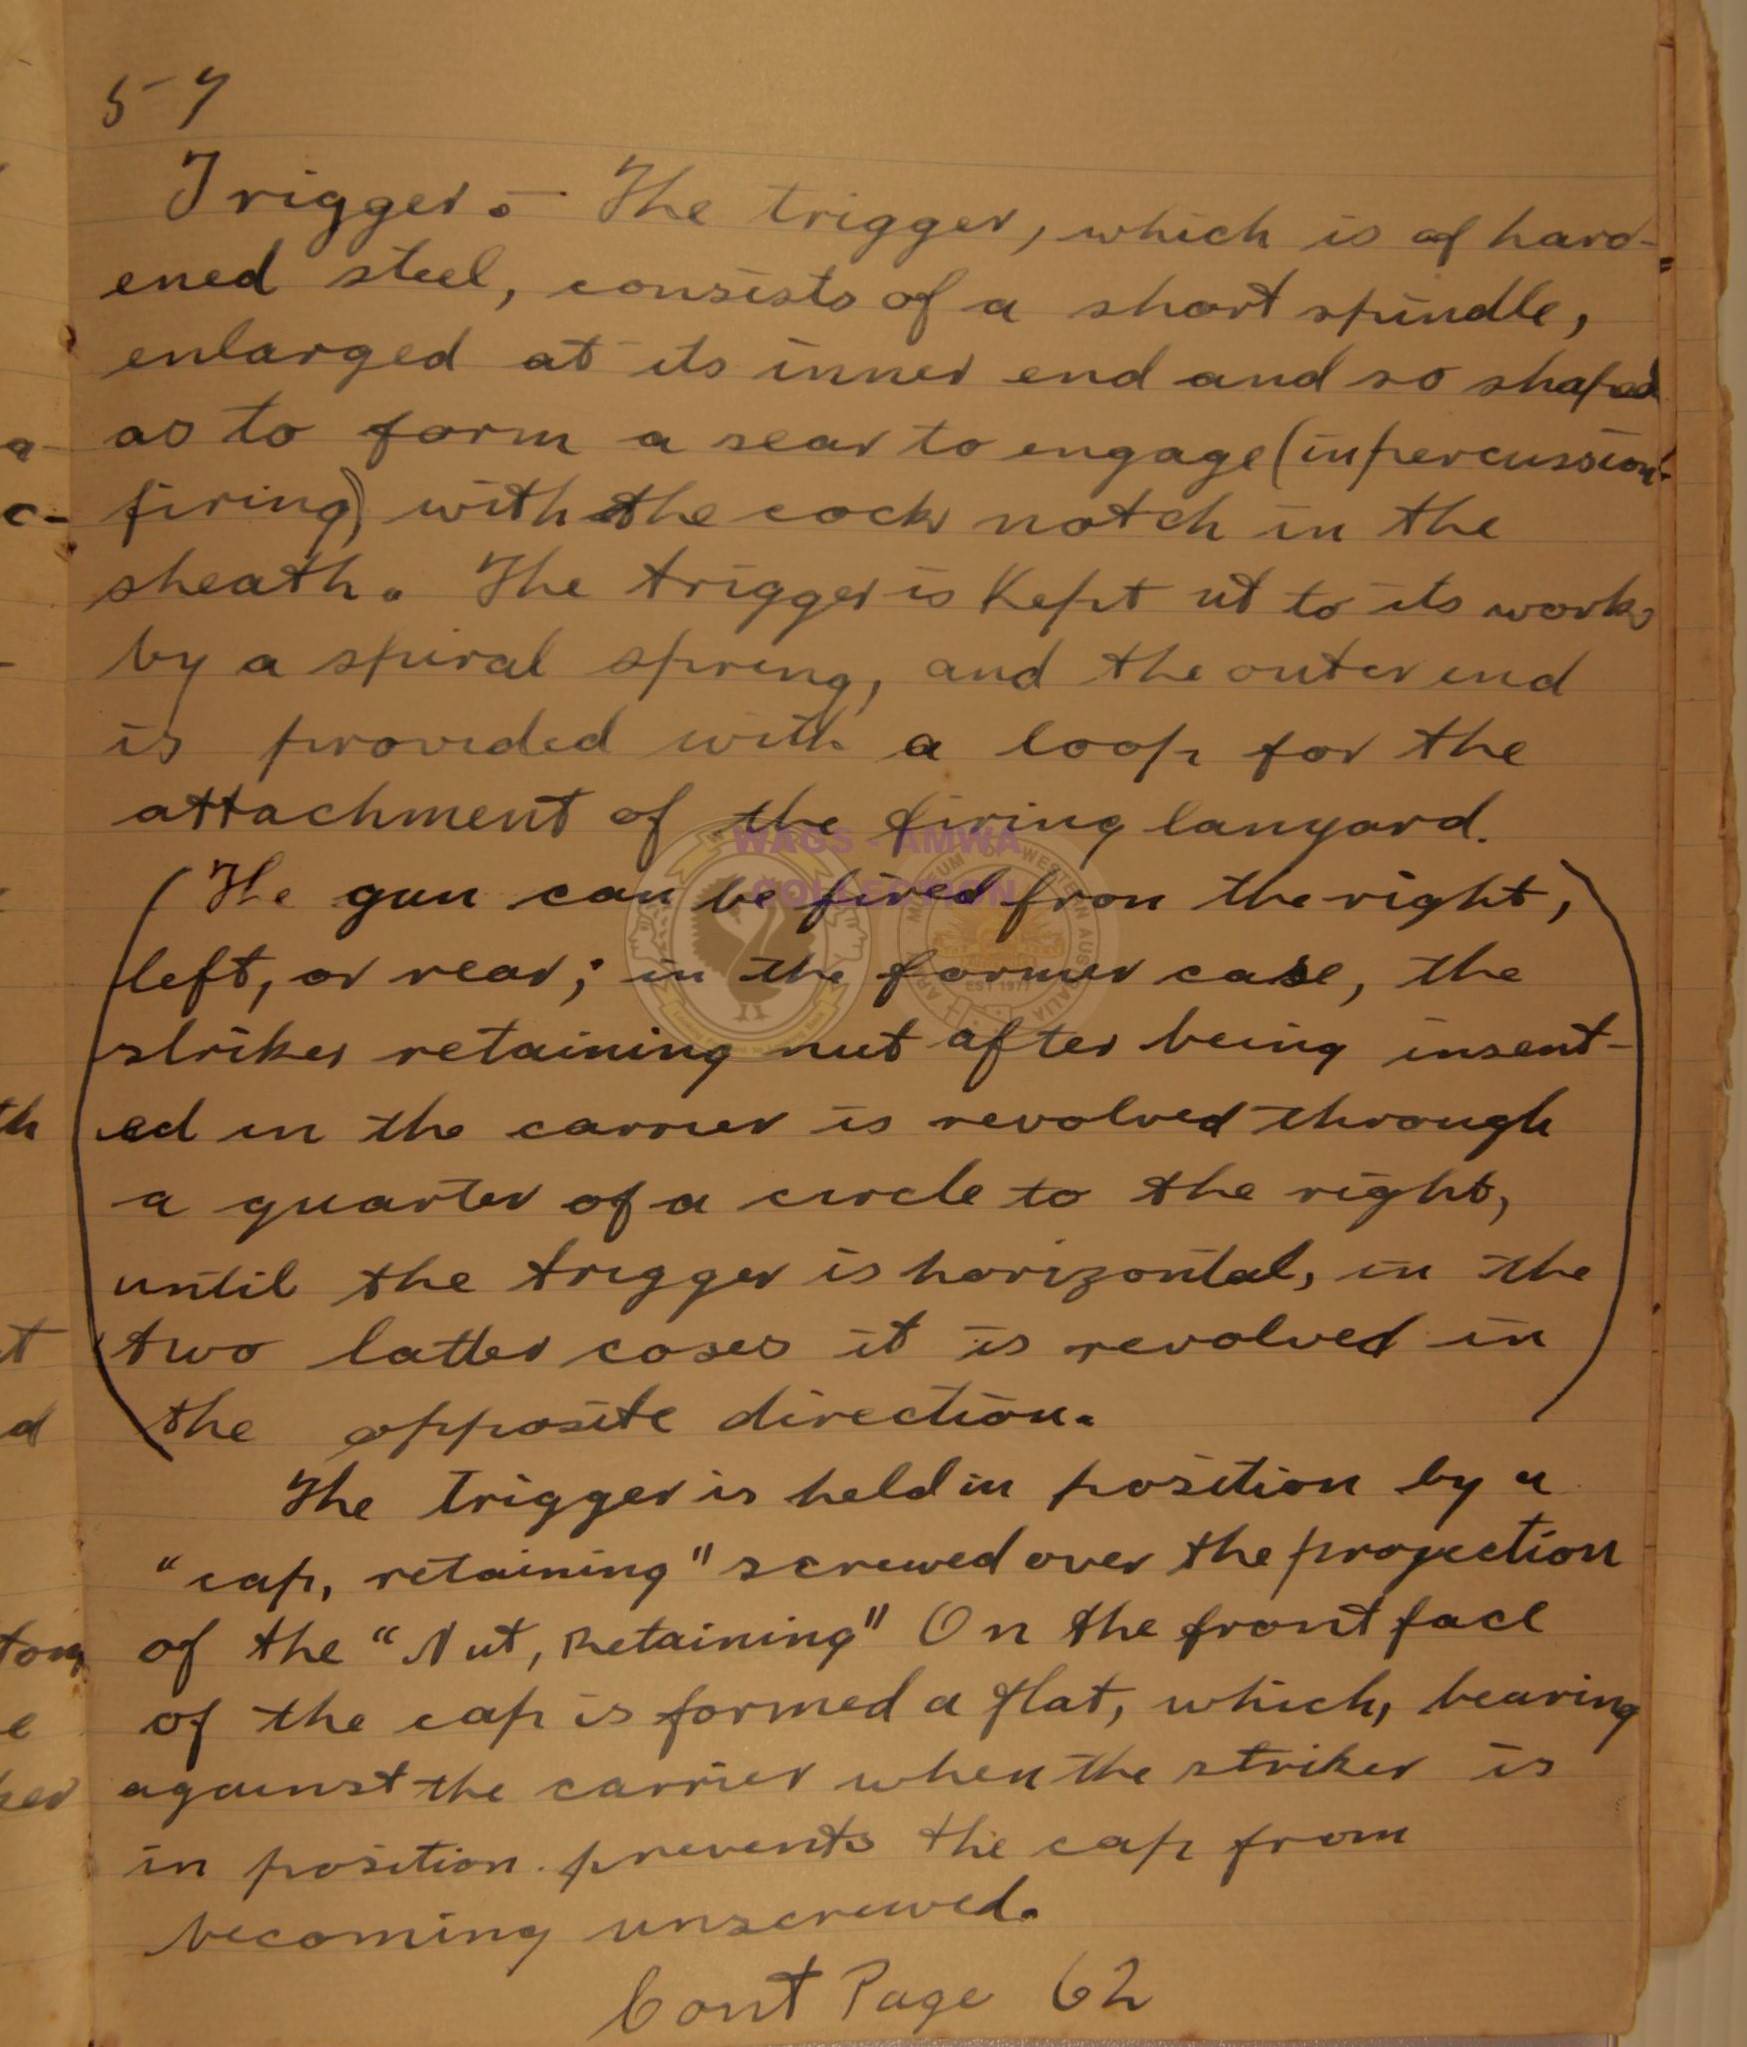 57
Trigger. - The trigger, which is of hard-
ened steel, consists of a short spindle,
enlarged at its inner end and so shaped
as to form a sear to engage (in percussion-
firing) with the cock notch in the
sheath. The trigger is Kept ut to its work
by a spiral spring, and the outer end
is provided with a loop for the
attachment of the firing lanyard.
(The gun can be fired fron the right,
left, or rear; in the former case, the
striker retaining nut after being insent-
ed in the carrier is revolved through
a quarter of a circle to the right,
until the trigger is horizontal, in the
two latter cases it is revolved in
the opposite direction.)
The trigger is held in position by a
"cap, retaining" screwed over the projection
of the "Nut, Retaining" On the front face
of the cap is formed a flat, which, bearing
against the carrier when the striker is
in position. prevents the cap from
becoming unscrewed.
Cont Page 62
WAGS - AMWA
COLLECTION
ARMY MUSEUM OF WESTERN AUSTRALIA
EST 1977
a-
c-
th
t
d
tom
e
ker